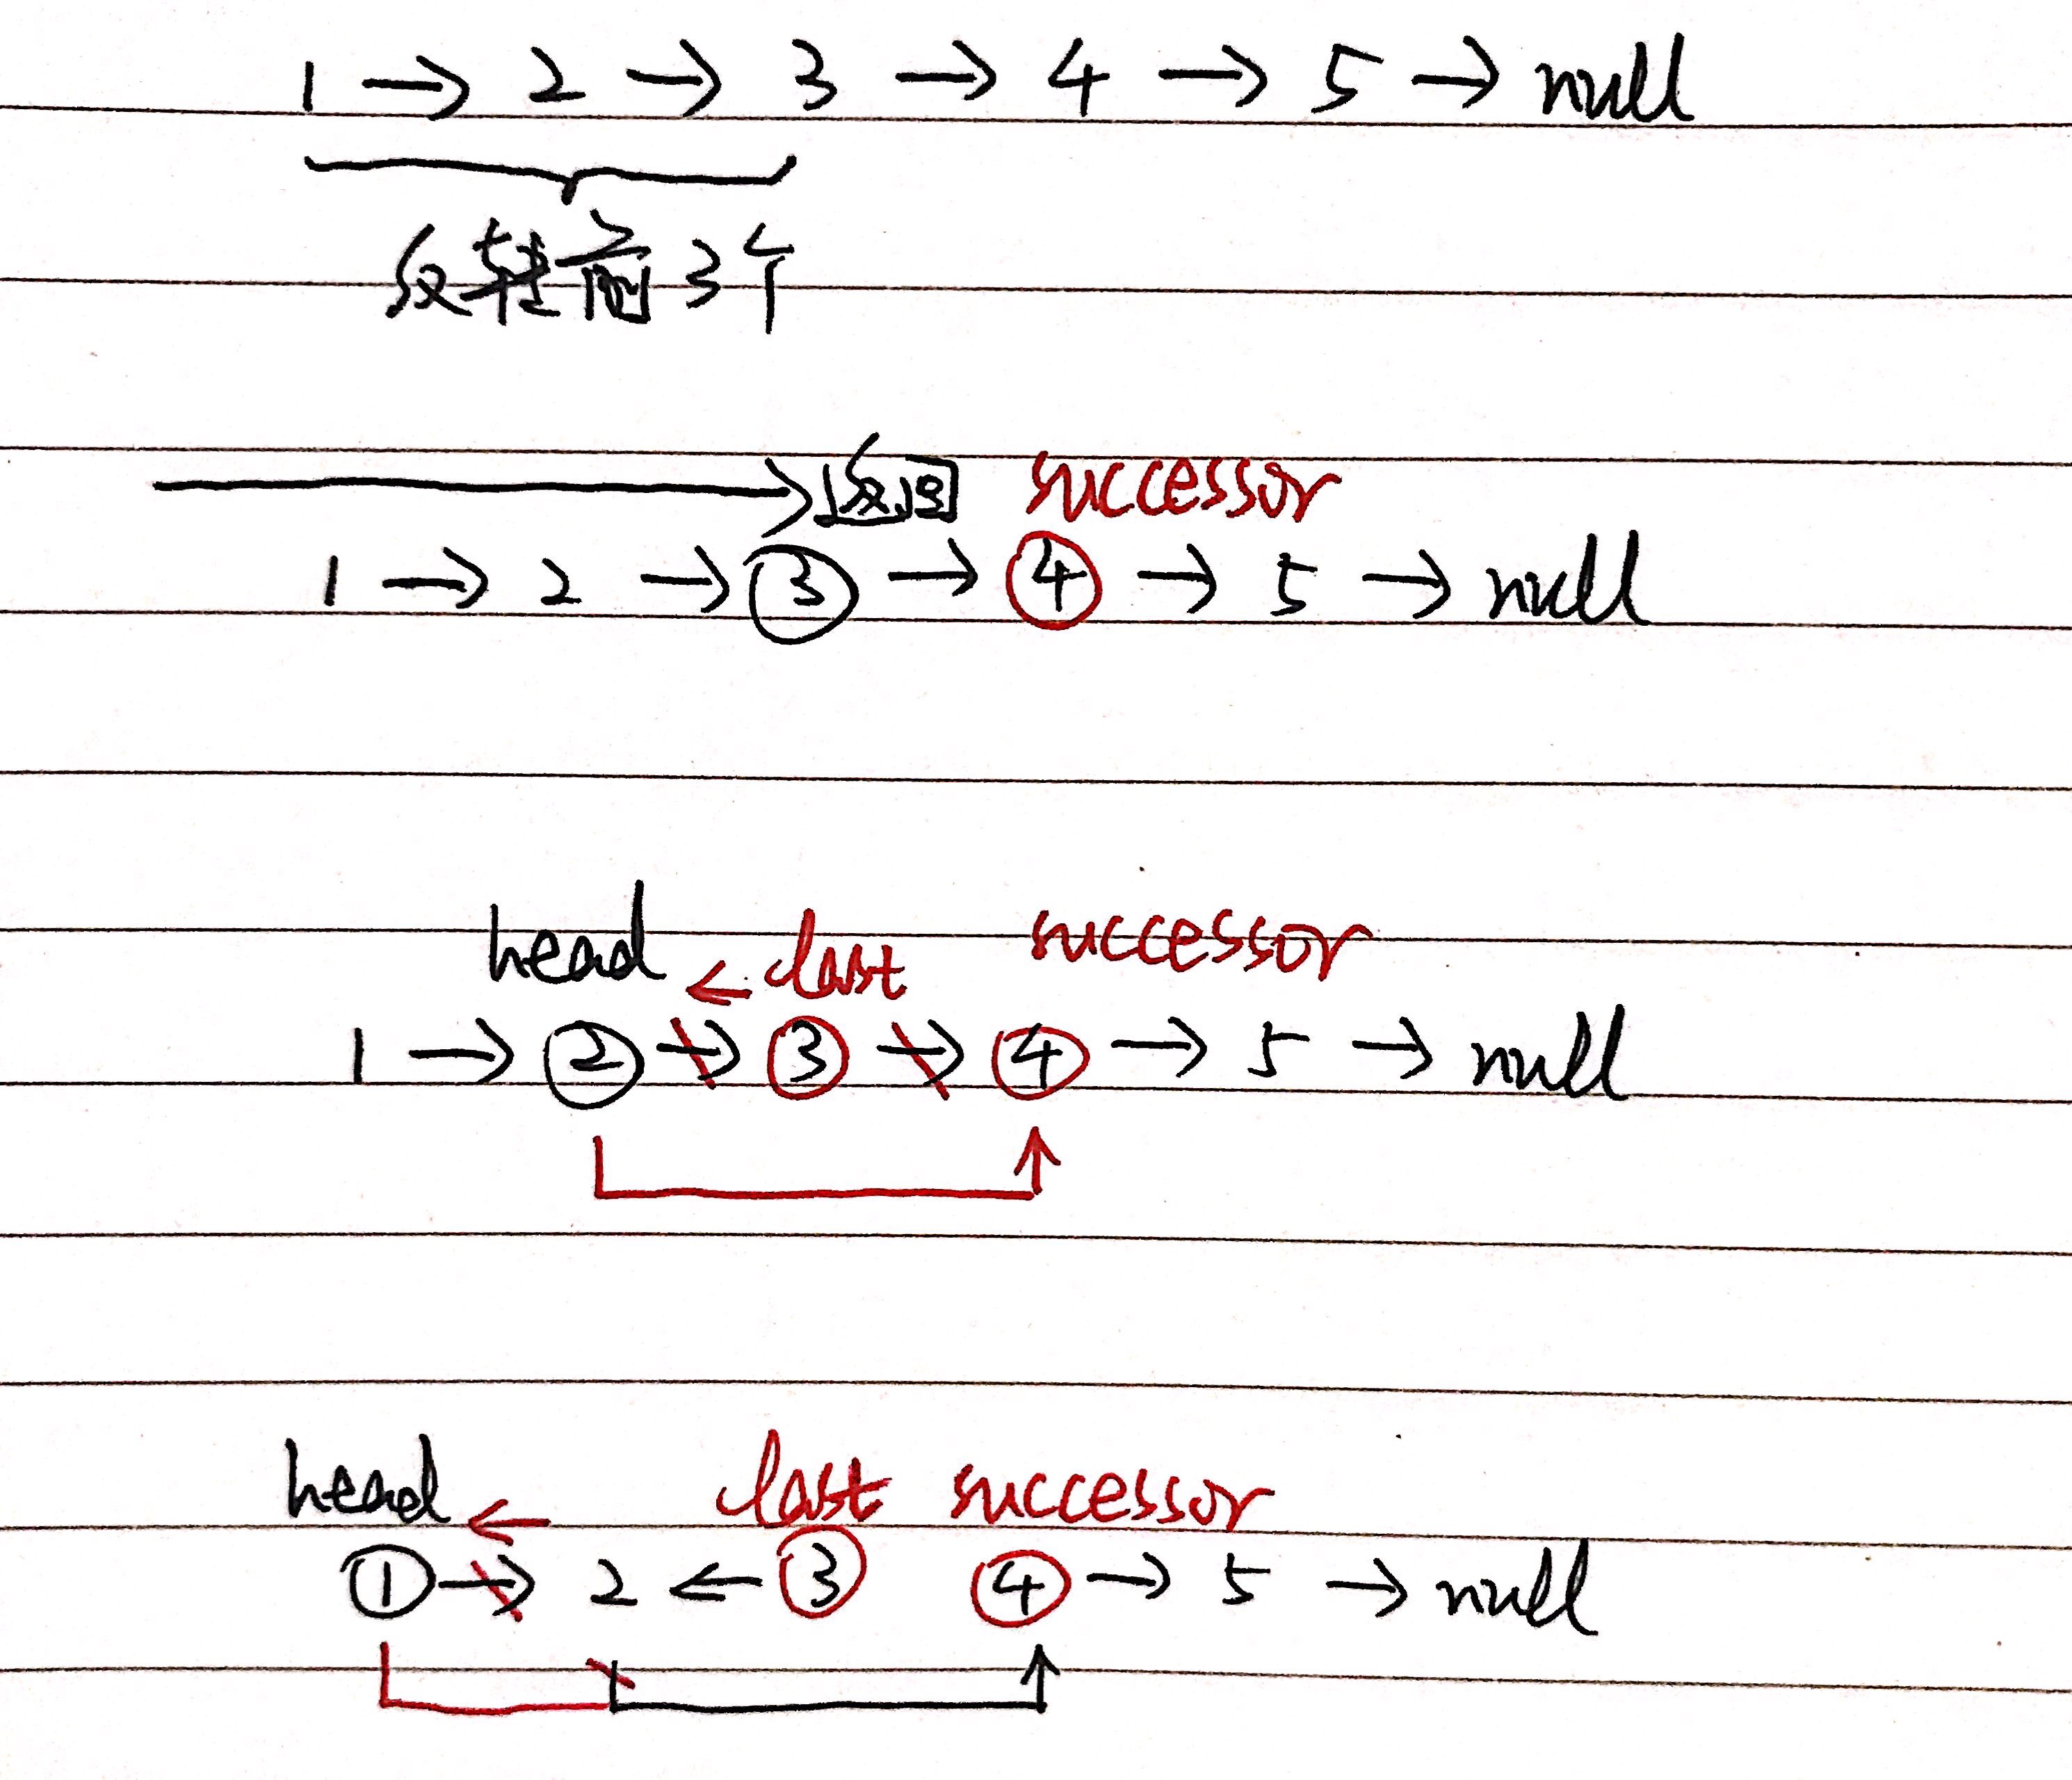 1 → 2 → 3 → 4 → 5 → null
反转前3个
→返回 successor
1 → 2 → ③ → ④ → 5 → null
head ← last successor
1 → ② → ③ → ④ → 5 → null
head ← last successor
① → 2 ← ③ ④ → 5 → null